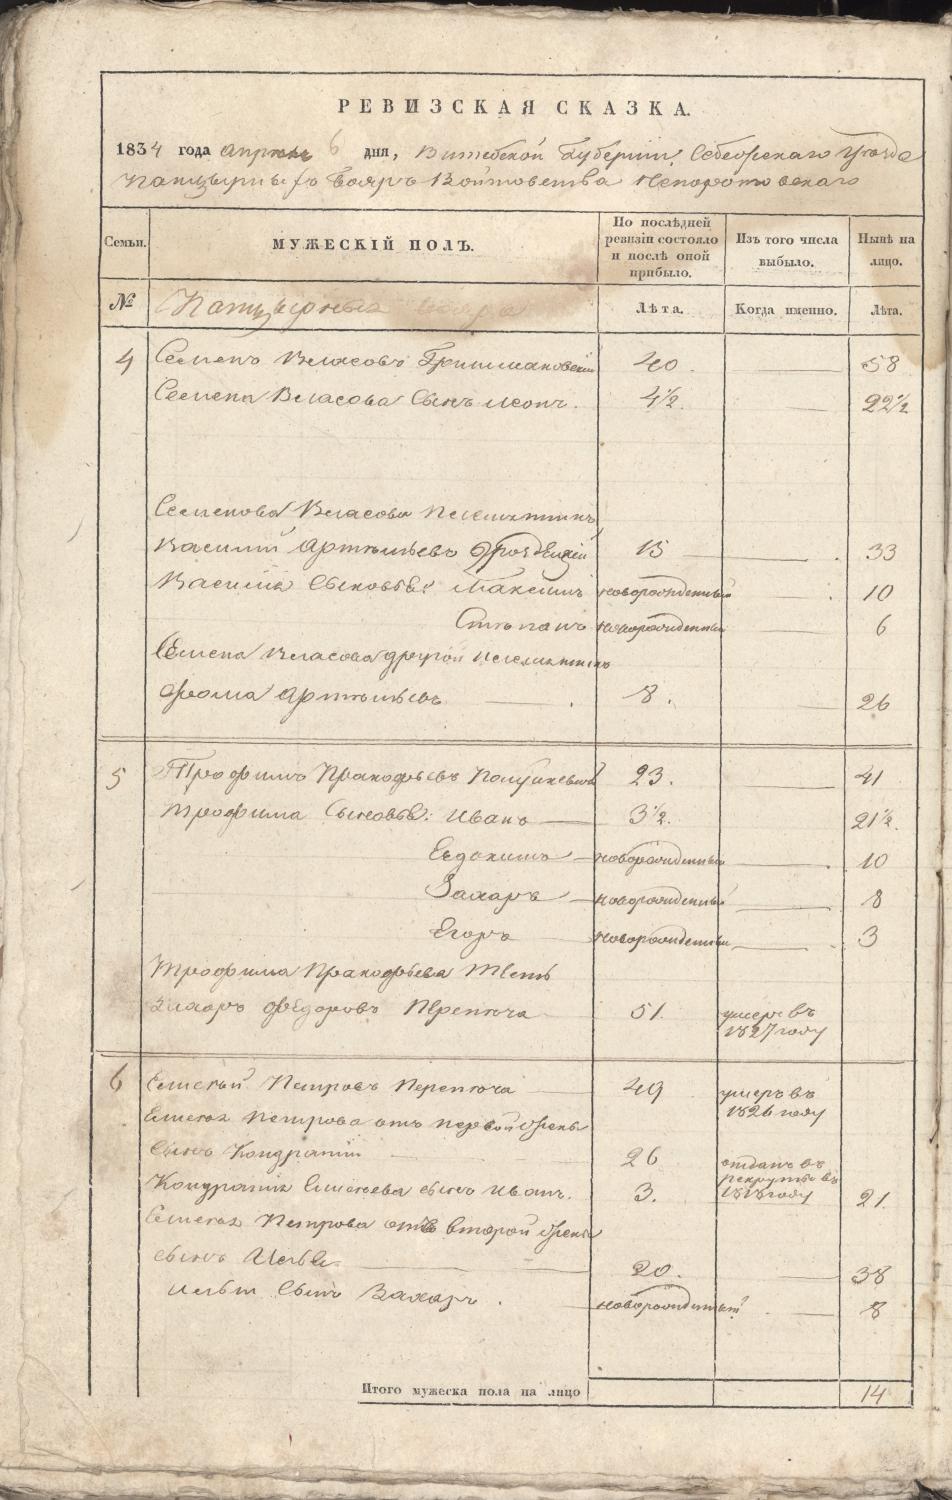 РЕВИЗСКАЯ СКАЗКА.
1834 года апрель 6 дня, Витебской Губернии, Себежскаго Уѣзда
Панцырныхъ Бояръ Войтовства Непоротовскаго
Семьи. МУЖЕСКІЙ ПОЛЪ. По послѣдней ревизіи состояло и послѣ оной прибыло. Изъ того числа выбыло. Нынѣ на лицо.
№ Панцырныхъ бояръ Лѣта. Когда именно. Лѣта.
4 Семенъ Власовъ 40 58
Семена Власова Сынъ Леонъ. 4½ 22½
Семенова Власова Племянникъ
Василій Артемьевъ 15 33
Василія Сыновья: Максимъ новорожденный 10
Степанъ новорожденный 6
Семена Власова другой племянникъ
Фома Артемьевъ 8. 26
5 Трофимъ Пракофьевъ 23. 41
Трофима Сыновья: Иванъ 3½. 21½.
Евдокимъ новорожденный 10
Захаръ новорожденный 8
Егоръ новорожденный 3
Трофима Пракофьева Тесть
Захаръ Федоровъ Перепеча 51. умеръ въ 1827 году
6 Елисей Петровъ Перепеча 49 умеръ въ 1826 году
Елисея Петрова отъ первой жены
сынъ Кондратій 26 отданъ въ рекруты въ 1818 году
Кондратія Елисеева сынъ Иванъ. 3. 21.
Елисея Петрова отъ второй жены
сынъ Илья 20. 38
Ильи Сынъ Захаръ. новорожденный 8
Итого мужеска пола на лицо 14